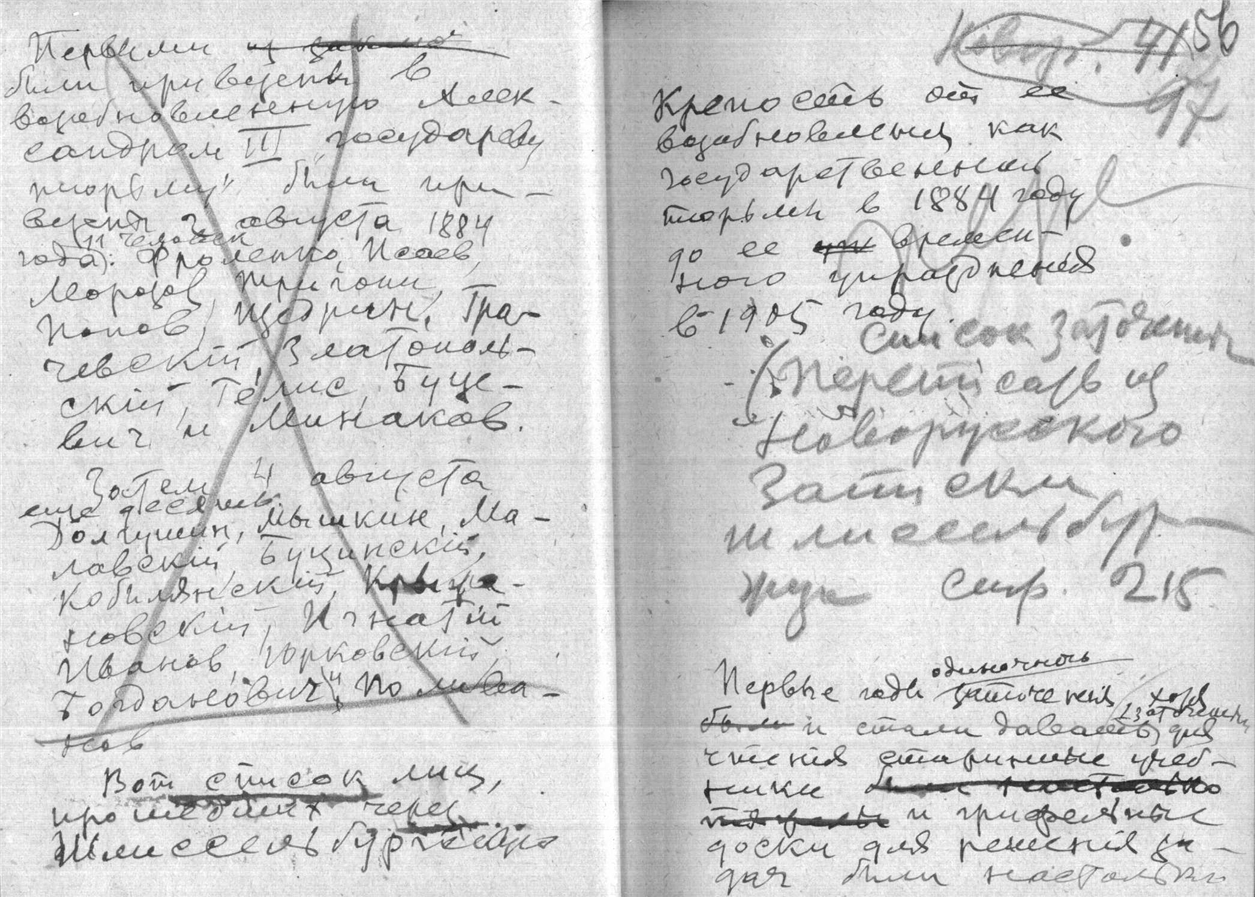 Первыми
были привезены в
возобновленную Алек-
сандром III „государеву
тюрьму“ были при-
везены 2 августа 1884
года (11 человек): Фроленко, Исаев,
Морозов, Тригони,
Попов, Щедрин, Гра-
чевскій, Златополь-
скій, Гелис, Буце-
вич и Минаков.
Затем 4 августа
еще десять
Долгушин, Мышкин, Ма-
лавскій, Буцинскій,
Кобылянскій, Крыжа-
новскій, Игнатій
Иванов, Юрковскій,
Богданович и Полива-
нов
Вот список лиц,
прошедших через
Шлиссельбургскую
56
Новор. 41
97
Крепость от ее
возобновленія как
государственной
тюрьмы в 1884 году
до ее времен-
ного упраздненія
в 1905 году.
Список заточенных
(Переписать из
Новорусского
Записки
шлиссельбур-
жца стр. 215
Первые годы одиночного заточенія хотя
и стали давать (заточенным) для
чтенія старинные учеб-
ники
и грифельные
доски для решенія за-
дач были настолько